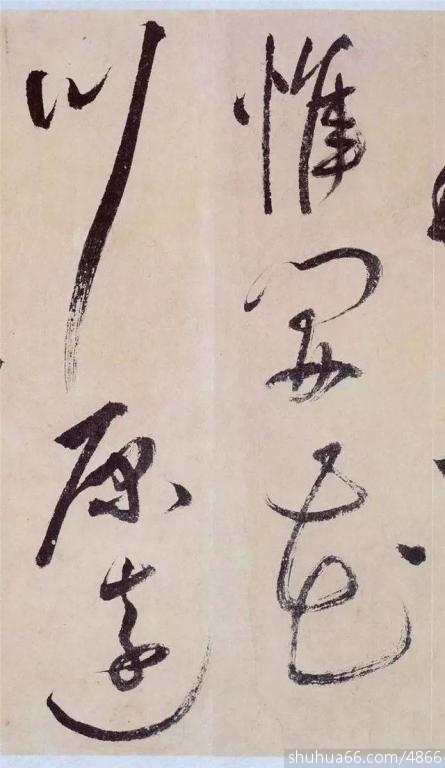 惟開花
川原遠
shuhua66.com/4866